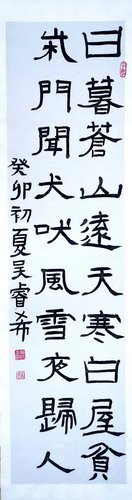 日暮蒼山遠天寒白屋貧
柴門聞犬吠風雪夜歸人
癸卯初夏吴睿希